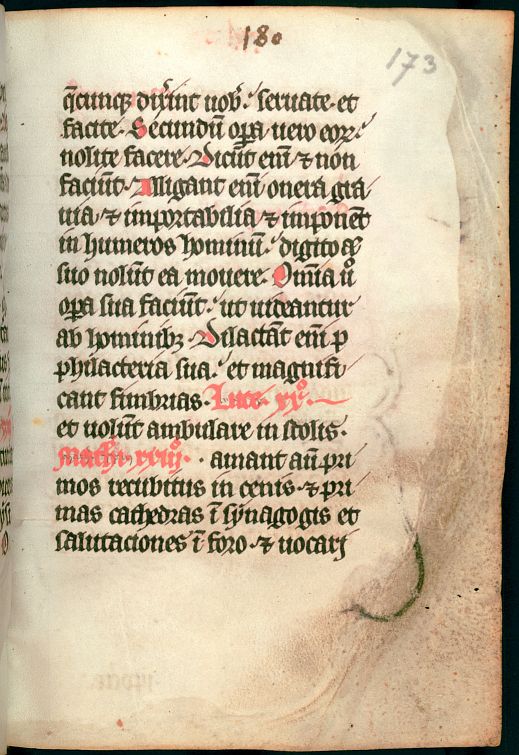 180
173
q̄cunqꝫ dix̄int uob᷒ · seruate · et
facite · Secundū oꝑa uero eoꝝ ·
nolite facere · Dicūt eni᷒ ⁊ non
faciūt · Alligant eni᷒ onera gra
uia · ⁊ importabilia · ⁊ imponūt
in humeros hominū · digito aūt
suo nolūt ea mouere · Om̄ia uº
oꝑa sua faciūt · ut uideantur
ab hominibꝫ · Dilactāt eni᷒ p
philacteria sua · et magnifi
cant fimbrias · Luce · xxº ·
et uolūt ambulare in stolis ·
Mathi · xxiijº · amant aūt pri
mos recubitus in cenis · ⁊ pri
mas cathedras ī synagogis et
salutaciones ī foro · ⁊ uocarj